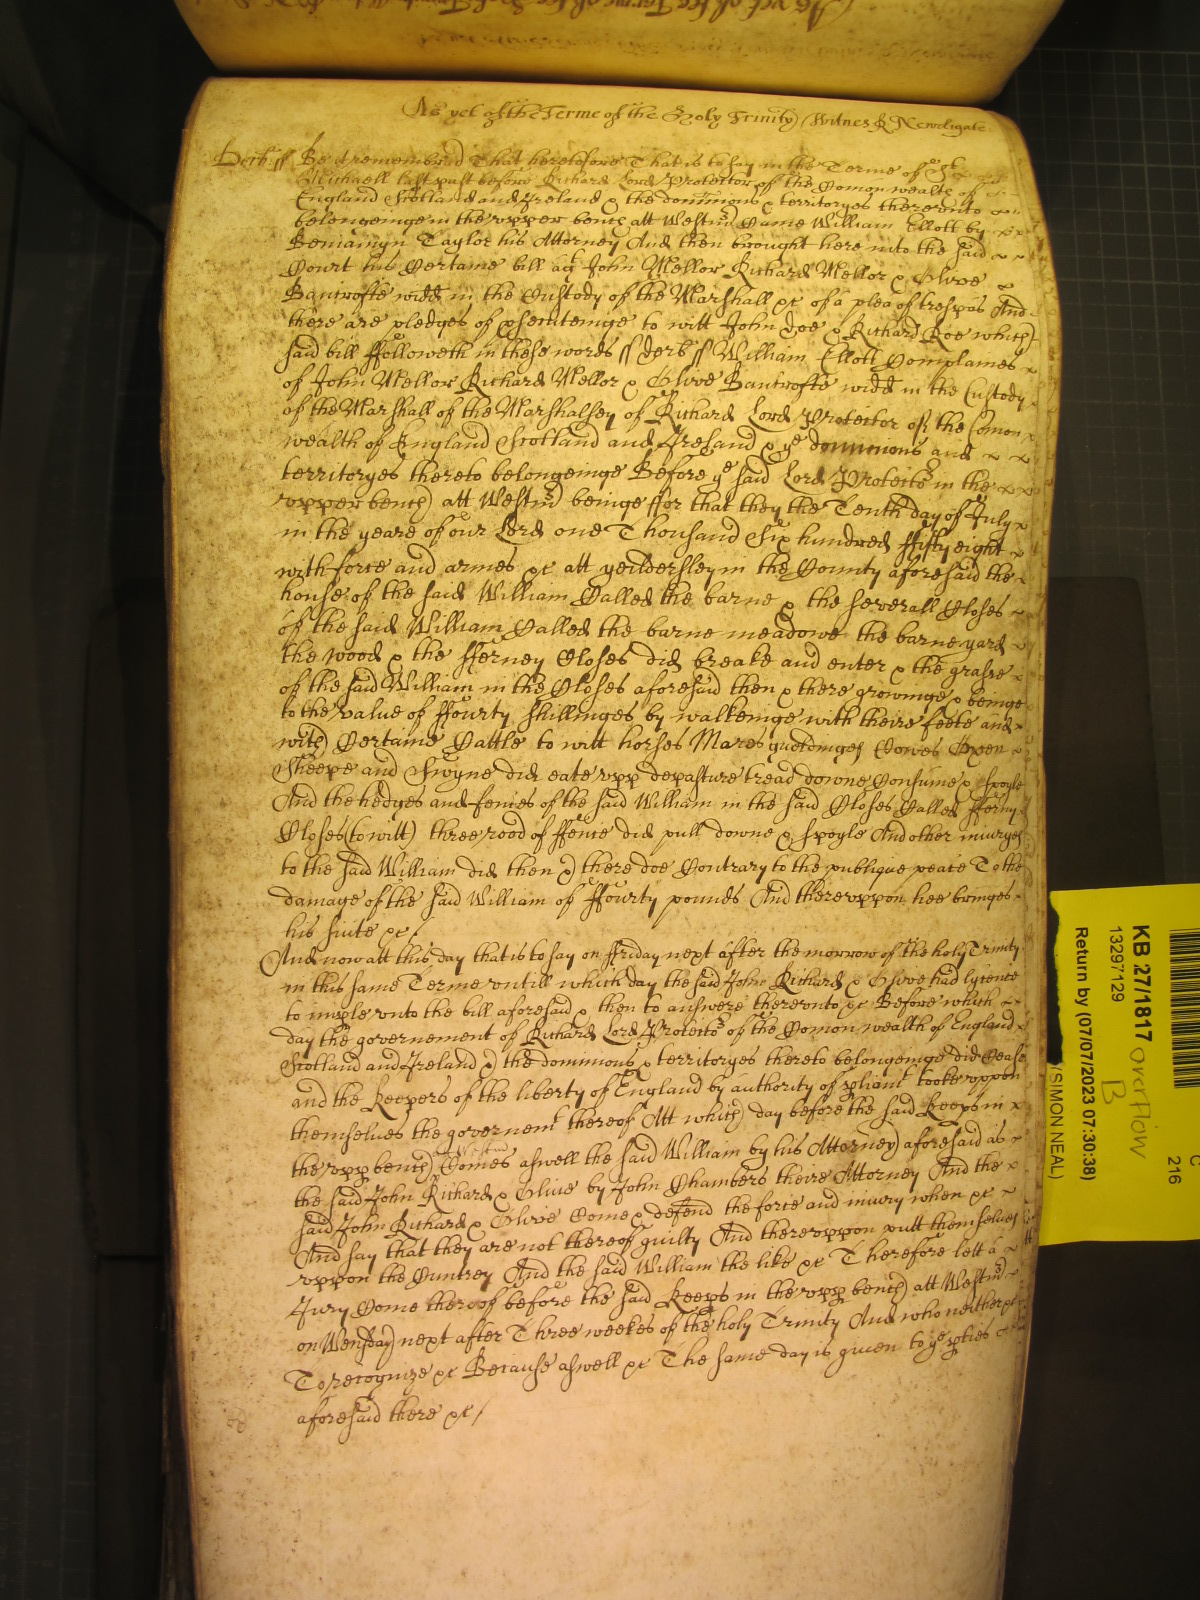 As yet of the Terme of the Holy Trinity Witnes R Newdigate
Derb: ss Be it remembred That heretofore That is to say in the Terme of St
Michaell last past before Richard Lord Protector of the Comon wealth of
England Scotland and Ireland & the dominions & territoryes thereunto
belongeinge in the upper bench att Westmr Came William Ellott by
Beniamyn Taylor his Attorney And then brought here into the said
Court his Certaine bill agt John Mellor Richard Mellor & Olive
Bancrofte widd in the Custody of the Marshall &c of a plea of trespas And
there are pledges of psecuteinge to witt John Doe & Richard Roe which
said bill ffolloweth in these words ss Derb ss William Ellott Complaines
of John Mellor Richard Mellor & Olive Bancrofte widd in the Custody
of the Marshall of the Marshalsey of Richard Lord Protector of the Comon
wealth of England Scotland and Ireland & ye dominions and
territoryes thereto belongeinge Before ye said Lord Protector in the
upper bench att Westmr beinge ffor that they the Tenth day of July
in the yeare of our Lord one Thousand Six hundred ffifty eight
with force and armes &c att yeildersley in the County aforesaid the
house of the said William Called the barne & the severall Closes
of the said William Called the barne meadowe the barne yard
the wood & the fferney Closes did breake and enter & the grasse
of the said William in the Closes aforesaid then & there growinge & beinge
to the value of ffourty shillinges by walkeinge with theire feete and
with Certaine Cattle to witt horses Mares gueldinges Cowes Oxen
Sheepe and Swyne did eate upp depasture tread downe Consume & spoyle
And the hedges and fences of the said William in the said Closes Called fferny
Closes (to witt) three rood of ffence did pull downe & spoyle And other iniuryes
to the said William did then & there doe Contrary to the publique peace To the
damage of the said William of ffourty pounds And thereuppon hee bringes
his suite &c /
And now att this day that is to say on ffriday next after the morrow of the holy Trinity
in this same Terme untill which day the said John Richard & Olive had lycence
to imple unto the bill aforesaid & then to answere thereunto &c Before which
day the governement of Richard Lord Protector of the Comon wealth of England
Scotland and Ireland & the dominions & territoryes thereto belongeinge did Cease
and the Keepers of the liberty of England by authority of pliamt tooke uppon
themselves the governemt thereof Att which day before the said Keeps in
the upp bench Comes aswell the said William by his Attorney aforesaid as
the said John Richard & Olive by John Chambers theire Attorney And the
said John Richard & Olive Come & defend the force and iniury when &c
And say that they are not thereof guilty And thereuppon putt themselves
uppon the Cuntrey And the said William the like &c Therefore lett a
Jury Come thereof before the said Keeps in the upp bench att Westmr
on Wensday next after Three weekes of the holy Trinity And who neither &c
To recognize &c Because aswell &c The same day is given to ye pties
aforesaid there &c /
KB 27/1817 overflow
B
13297129
Return by (07/07/2023 07:30:38)
(SIMON NEAL)
C
216